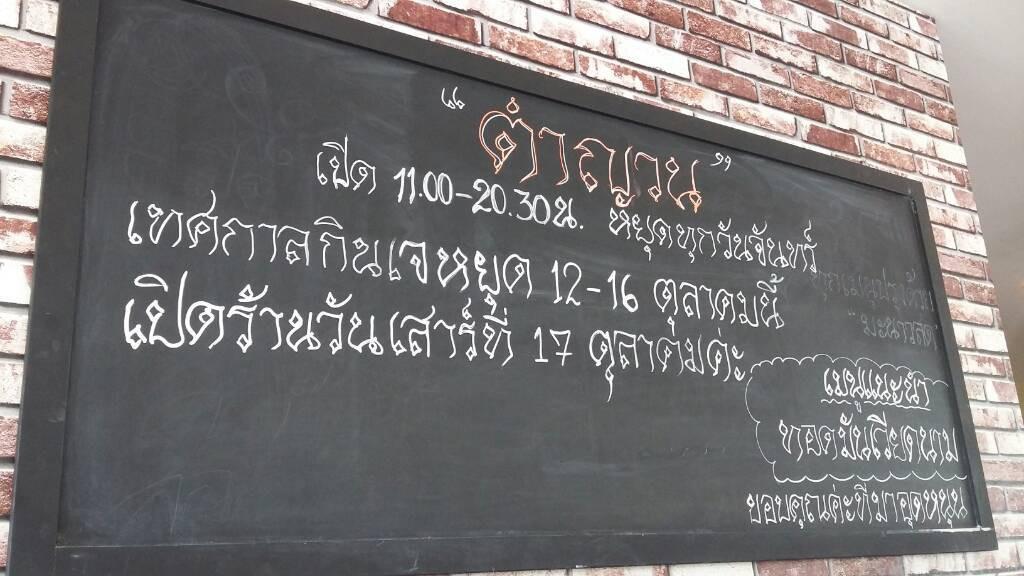 “ตำญวน”
เปิด 11.00-20.30น. หยุดทุกวันจันทร์
เทศกาลกินเจหยุด 12-16 ตุลาคมนี้
เปิดร้านวันเสาร์ที่ 17 ตุลาคมค่ะ
เมนูแนะนำ
ทอดมันเวียดนาม
ขอบคุณค่ะที่มาอุดหนุน